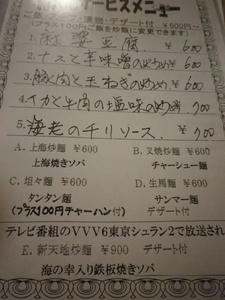 サービスメニュー
漬物・デザート付 ¥600〜
(プラス100円 飯を炒飯に変更できます)
1. 麻婆豆腐 ¥600
2. ナスと辛味噌のいため ¥600
3. 豚肉と玉ねぎのいため ¥600
4. イカと牛肉の塩味のいため ¥700
5. 海老のチリソース. ¥700
A. 上海炒麺 ¥600
上海焼きソバ
B. 叉焼炒麺 ¥600
チャーシュー麺
C. 坦々麺 ¥600
タンタン麺
(プラス100円チャーハン付)
D. 生馬麺 ¥600
サンマー麺
デザート付
テレビ番組のVVV6東京シュラン2で放送され
E. 新天地炒麺 ¥900 デザート付
海の幸入り鉄板焼きソバ